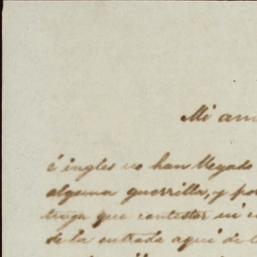 Mi am
é ingles no han llegado
alguna guerrilla, y por
tenga que contestar ni
de la entrada aqui de l